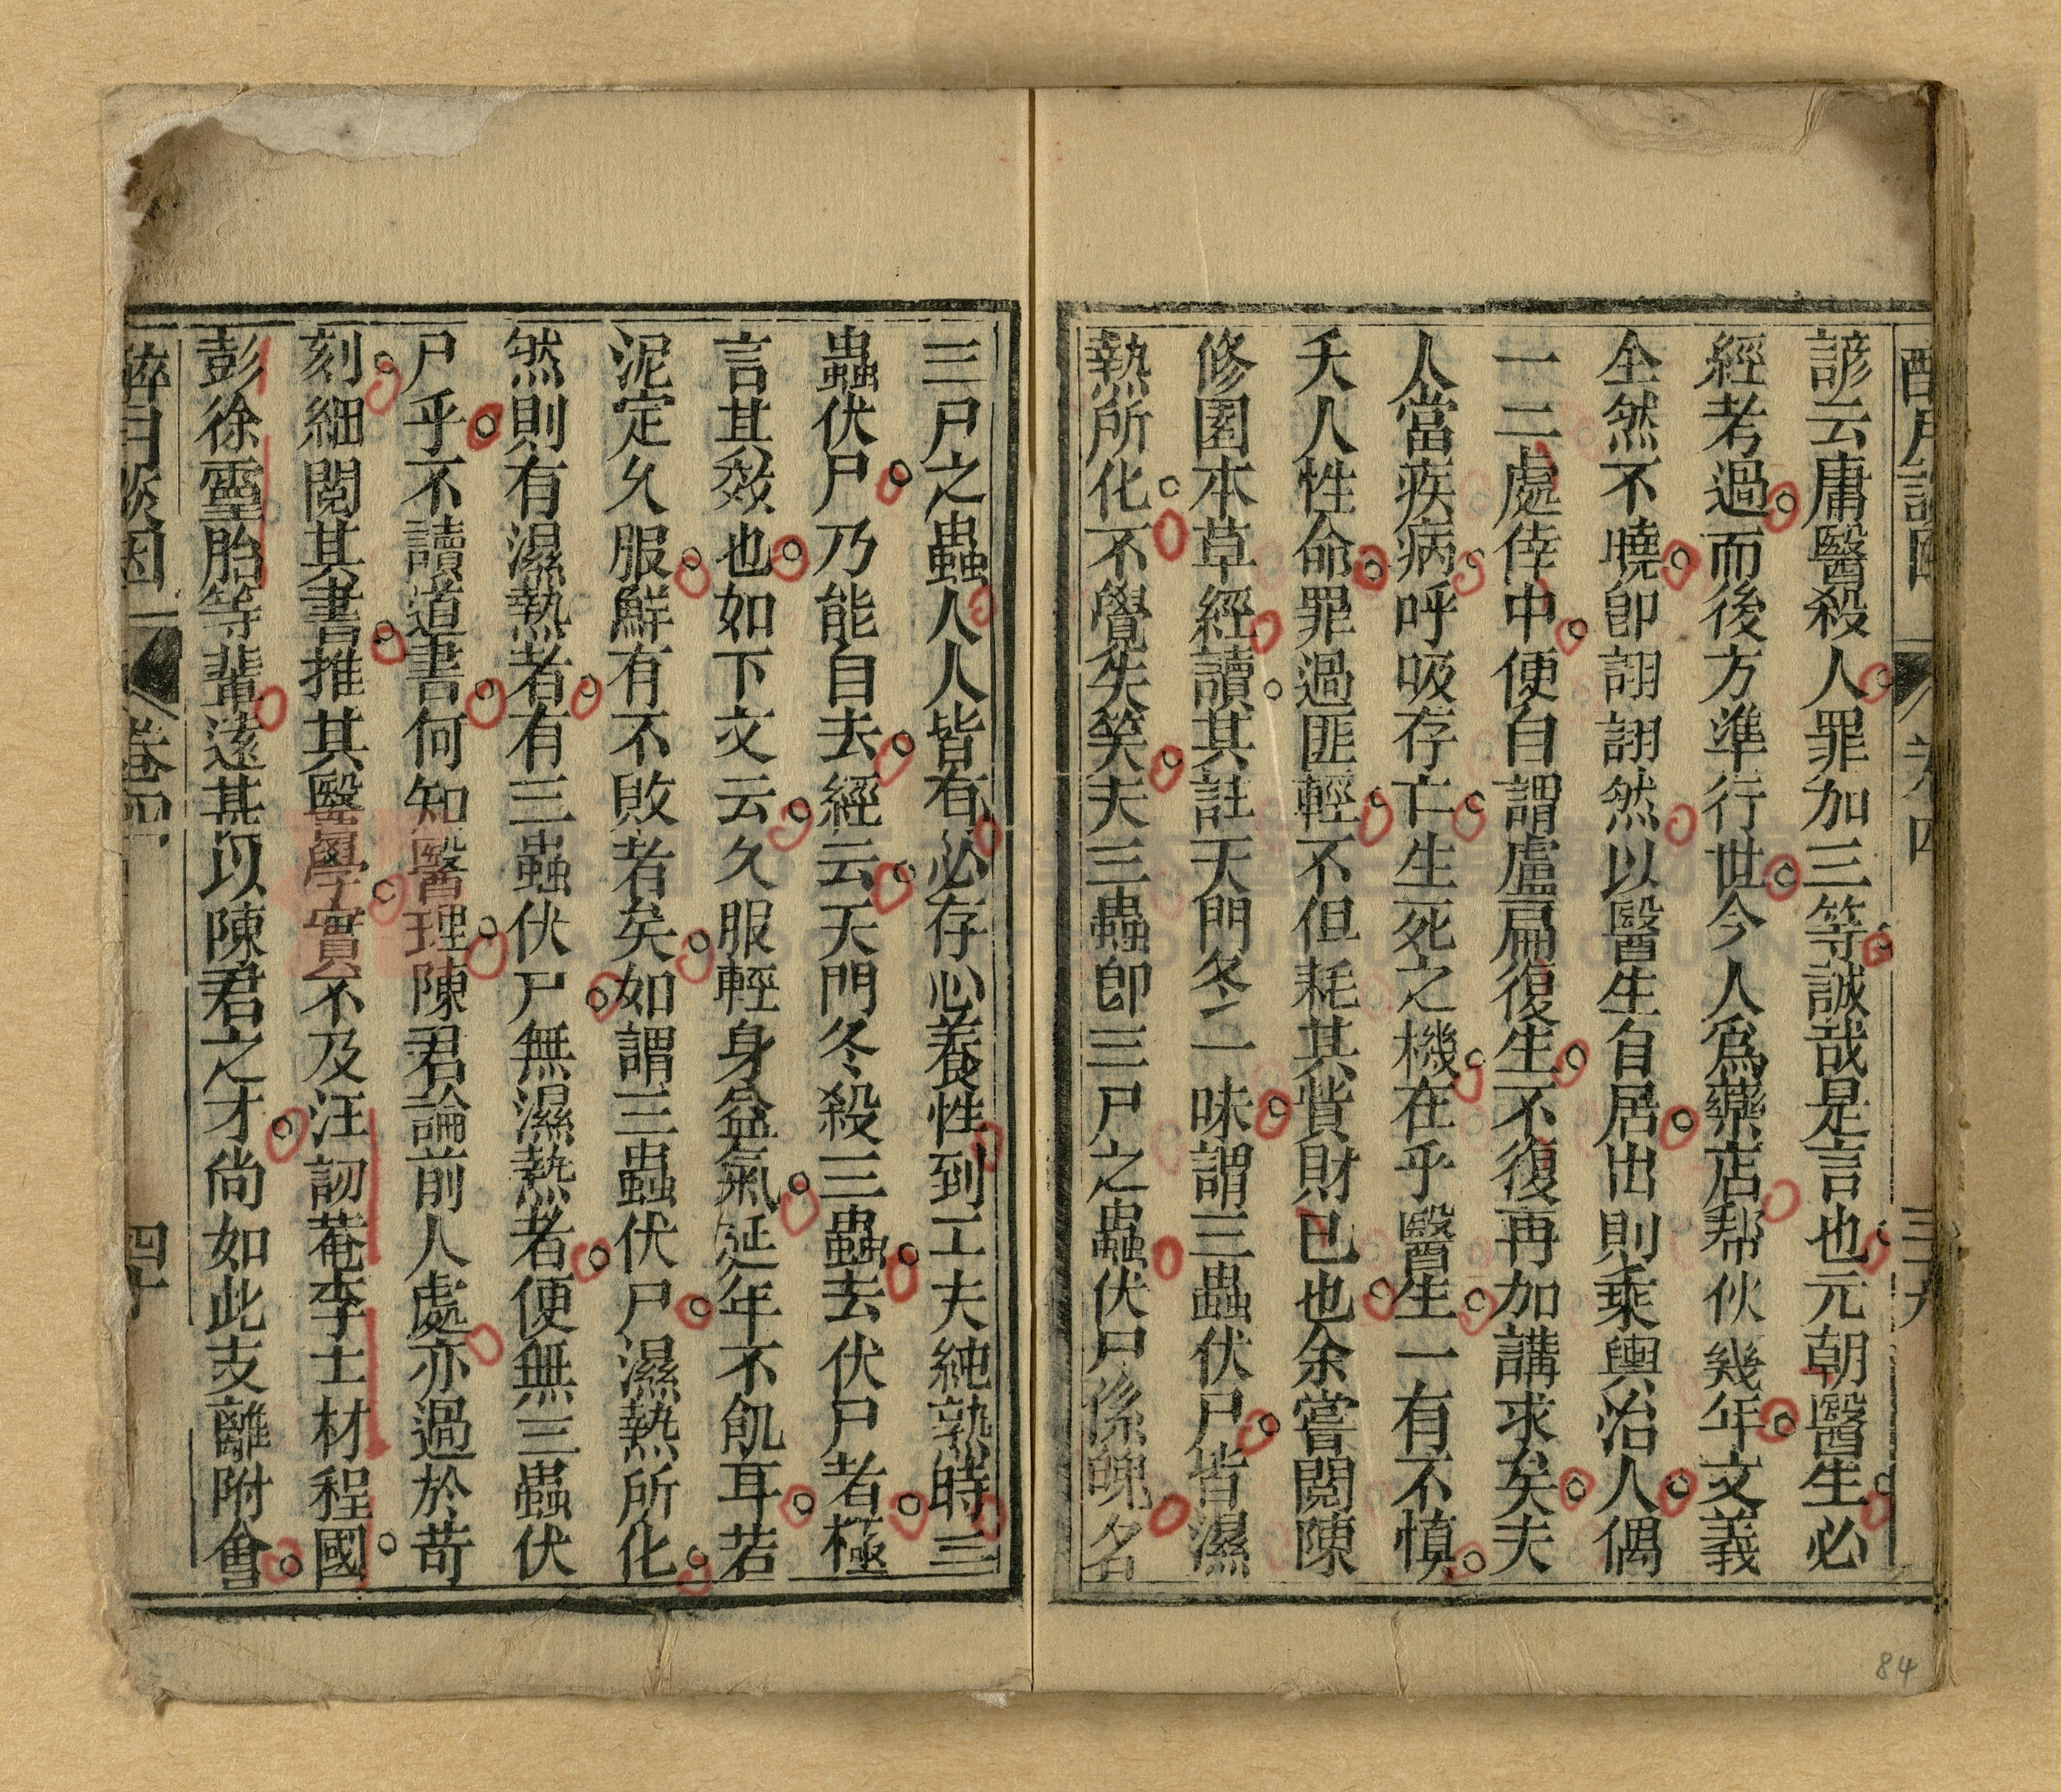 諺云庸醫殺人罪加三等誠哉是言也元朝醫生必
經考過而後方準行世今人爲藥店帮伙幾年文義
全然不曉卽詡詡然以醫生自居出則乘輿治人偶
一二處倖中便自謂盧扁復生不復再加講求矣夫
人當疾病呼吸存亡生死之機在乎醫生一有不慎
夭人性命罪過匪輕不但耗其貲財已也余嘗閱陳
修園本草經讀其註天門冬一味謂三蟲伏尸皆濕
熱所化不覺失笑夫三蟲卽三尸之蟲伏尸係魄名
三尸之蟲人人皆有必存心養性到工夫純熟時三
蟲伏尸乃能自去經云天門冬殺三蟲去伏尸者極
言其效也如下文云久服輕身益氣延年不飢耳若
泥定久服鮮有不敗者矣如謂三蟲伏尸濕熱所化
然則有濕熱者有三蟲伏尸無濕熱者便無三蟲伏
尸乎不讀道書何知醫理陳君論前人處亦過於苛
刻細閱其書推其醫學實不及汪訒菴李士材程國
彭徐靈胎等輩遠甚以陳君之才尚如此支離附會
卷四
四十
84